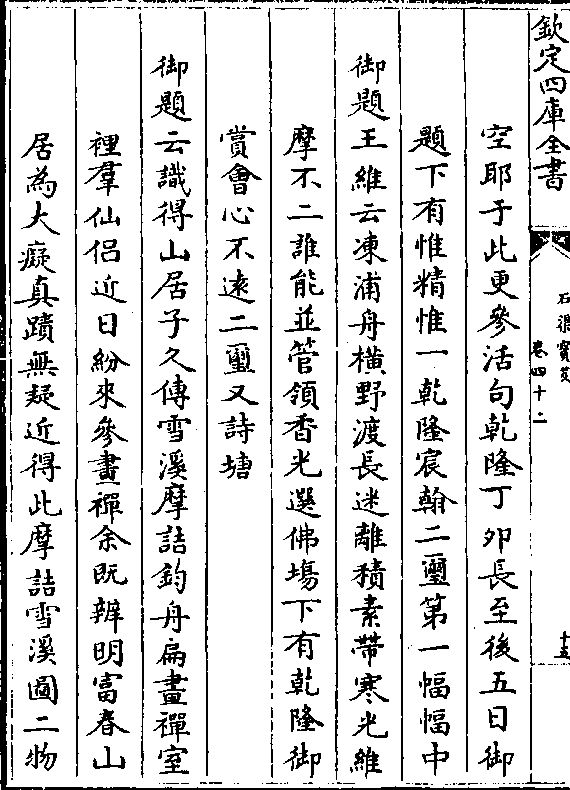 欽定四庫全書
石渠寳笈
卷四十二
十五
空耶于此更參活句乾隆丁卯長至後五日御
題下有惟精惟一乾隆宸翰二璽第一幅幅中
御題王維云凍浦舟橫野渡長迷離積素帶寒光維
摩不二誰能並管領香光選佛場下有乾隆御
賞會心不逺二璽又詩塘
御題云識得山居子久傳雪溪摩詰釣舟扁畫禪室
裡羣仙侣近日紛來參畫禪余既辨明富春山
居為大癡真蹟無疑近得此摩詰雪溪圖二物